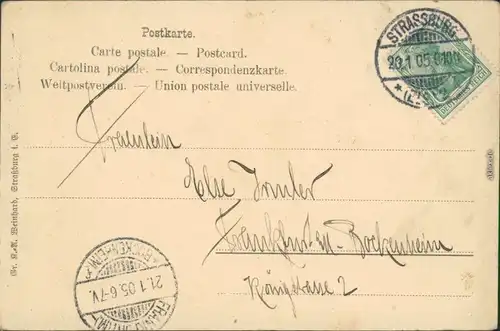 Postkarte.
Carte postale. — Postcard.
Cartolina postale. — Correspondenzkarte.
Weltpostverein. — Union postale universelle.
STRASSBURG
20.1 05.
* (ELS) 2
DEUTSCHES REICH
Fräulein
Else
Frankfurt M-Bockenheim
Königstrasse 2
Gr. K.-A. Weinhard, Strassburg i. E.
* BOCKENHEIM *
21.1 05. 6-7V.
FRANKFURT (MAIN)